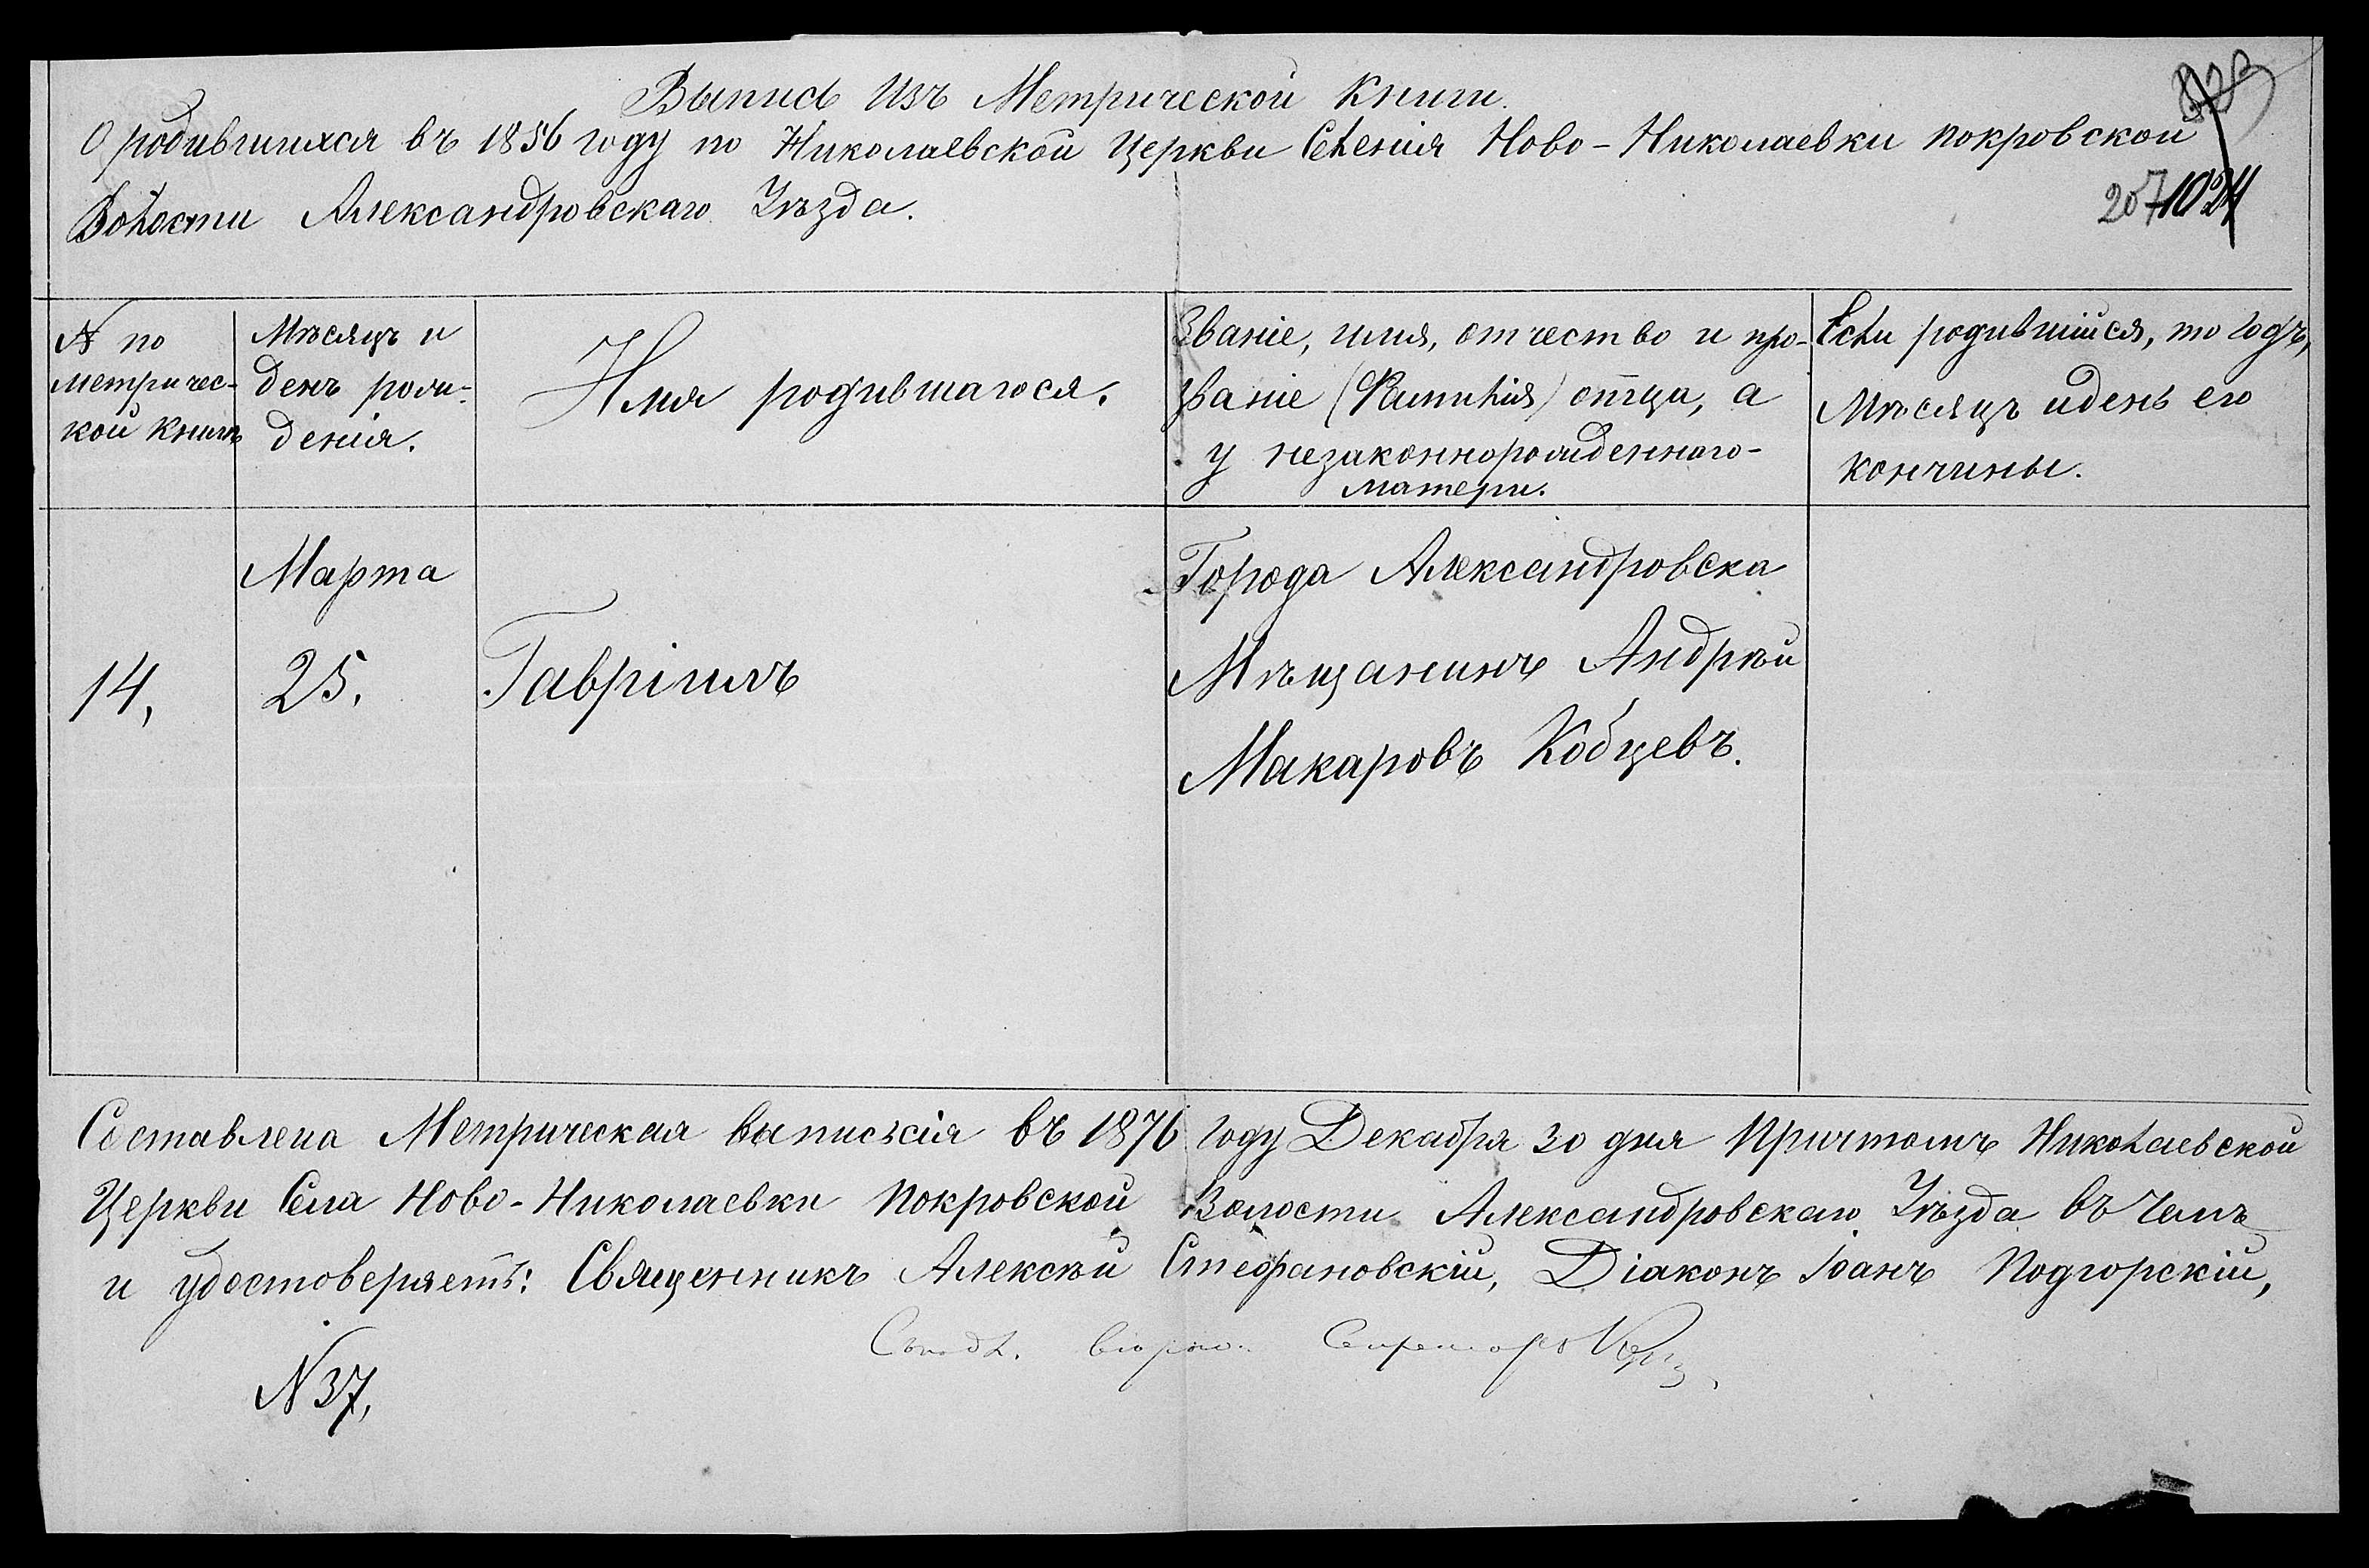 Выпись Изъ Метрической Книги.
О родившихся въ 1856 году по Николаевской Церкви Селенія Ново-Николаевки Покровской
Волости Александровскаго Уѣзда.
207 1024
№ по
Метричес-
кой Книгѣ
Мѣсяцъ и
день рож-
денія.
Имя родившагося.
Званіе, имя, отчество и про-
званіе (Фамилія) отца, а
у незаконнорожденного-
матери.
Если родившійся, то годъ,
Мѣсяцъ и день его
кончины.
14,
Марта
25.
Гавріилъ
Города Александровска
Мѣщанинъ Андрѣй
Макаровъ Кобцевъ.
Составлена Метрическая выпискія въ 1876 Году Декабря 30 дня Причтомъ Николаевской
Церкви Села Ново-Николаевки Покровской Волости Александровскаго Уѣзда въ чемъ
и удостоверяетъ: Священникъ Алексѣй Стефановскій, Діаконъ Іоанъ Подгорскій,
№ 37,